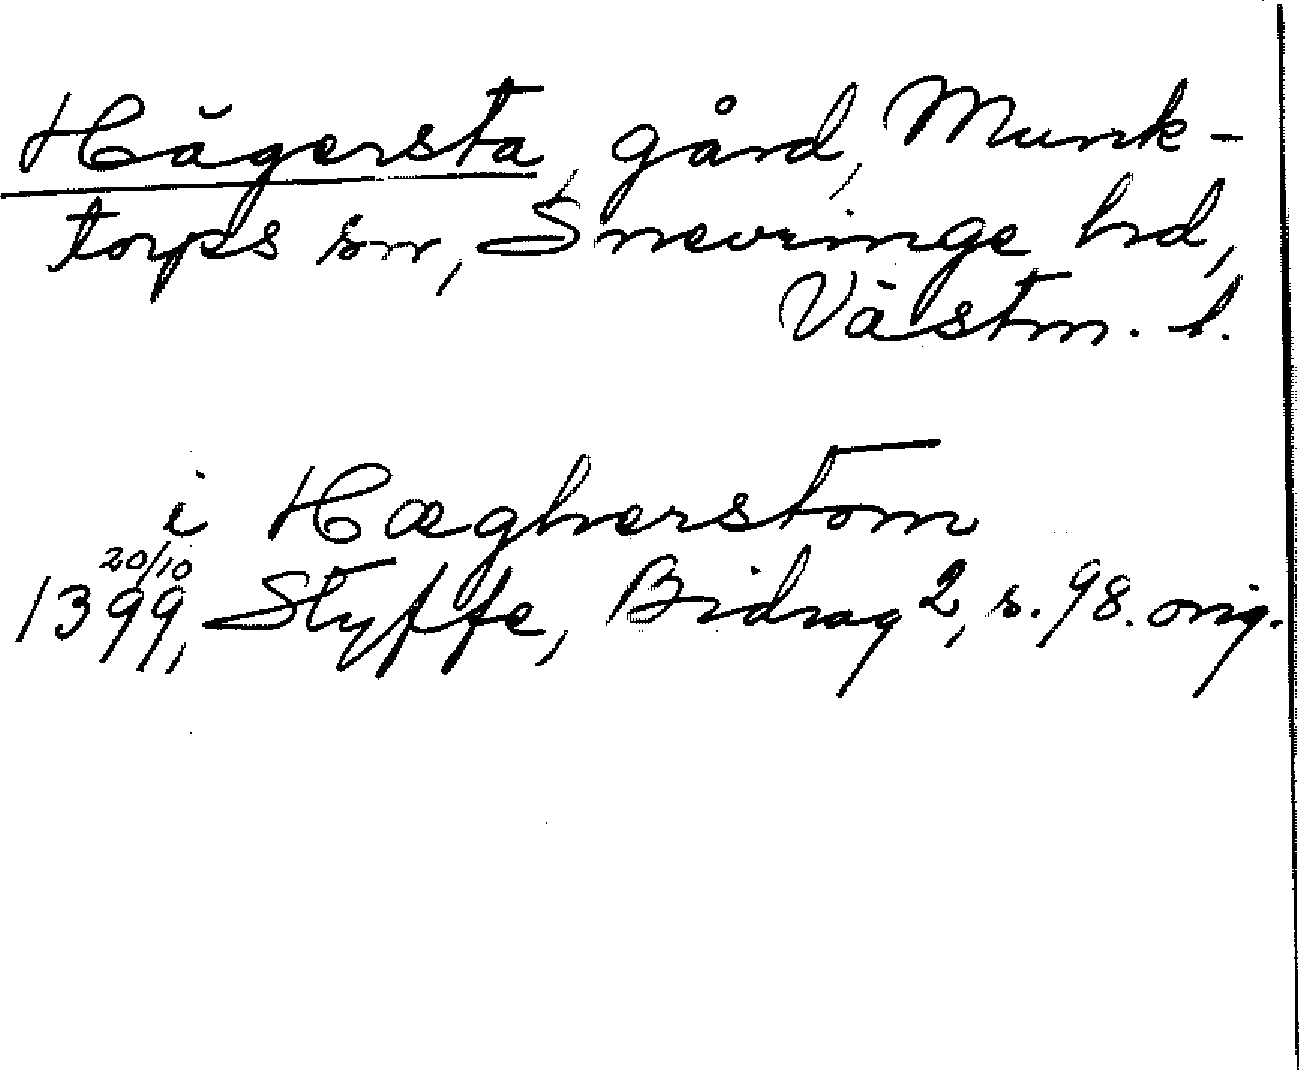 Hägersta, gård, Munk-
torps sn, Snevringe hd,
Västm. l.
i Hægherstom
20/10
1399, Styffe, Bidrag 2, s. 98. orig.